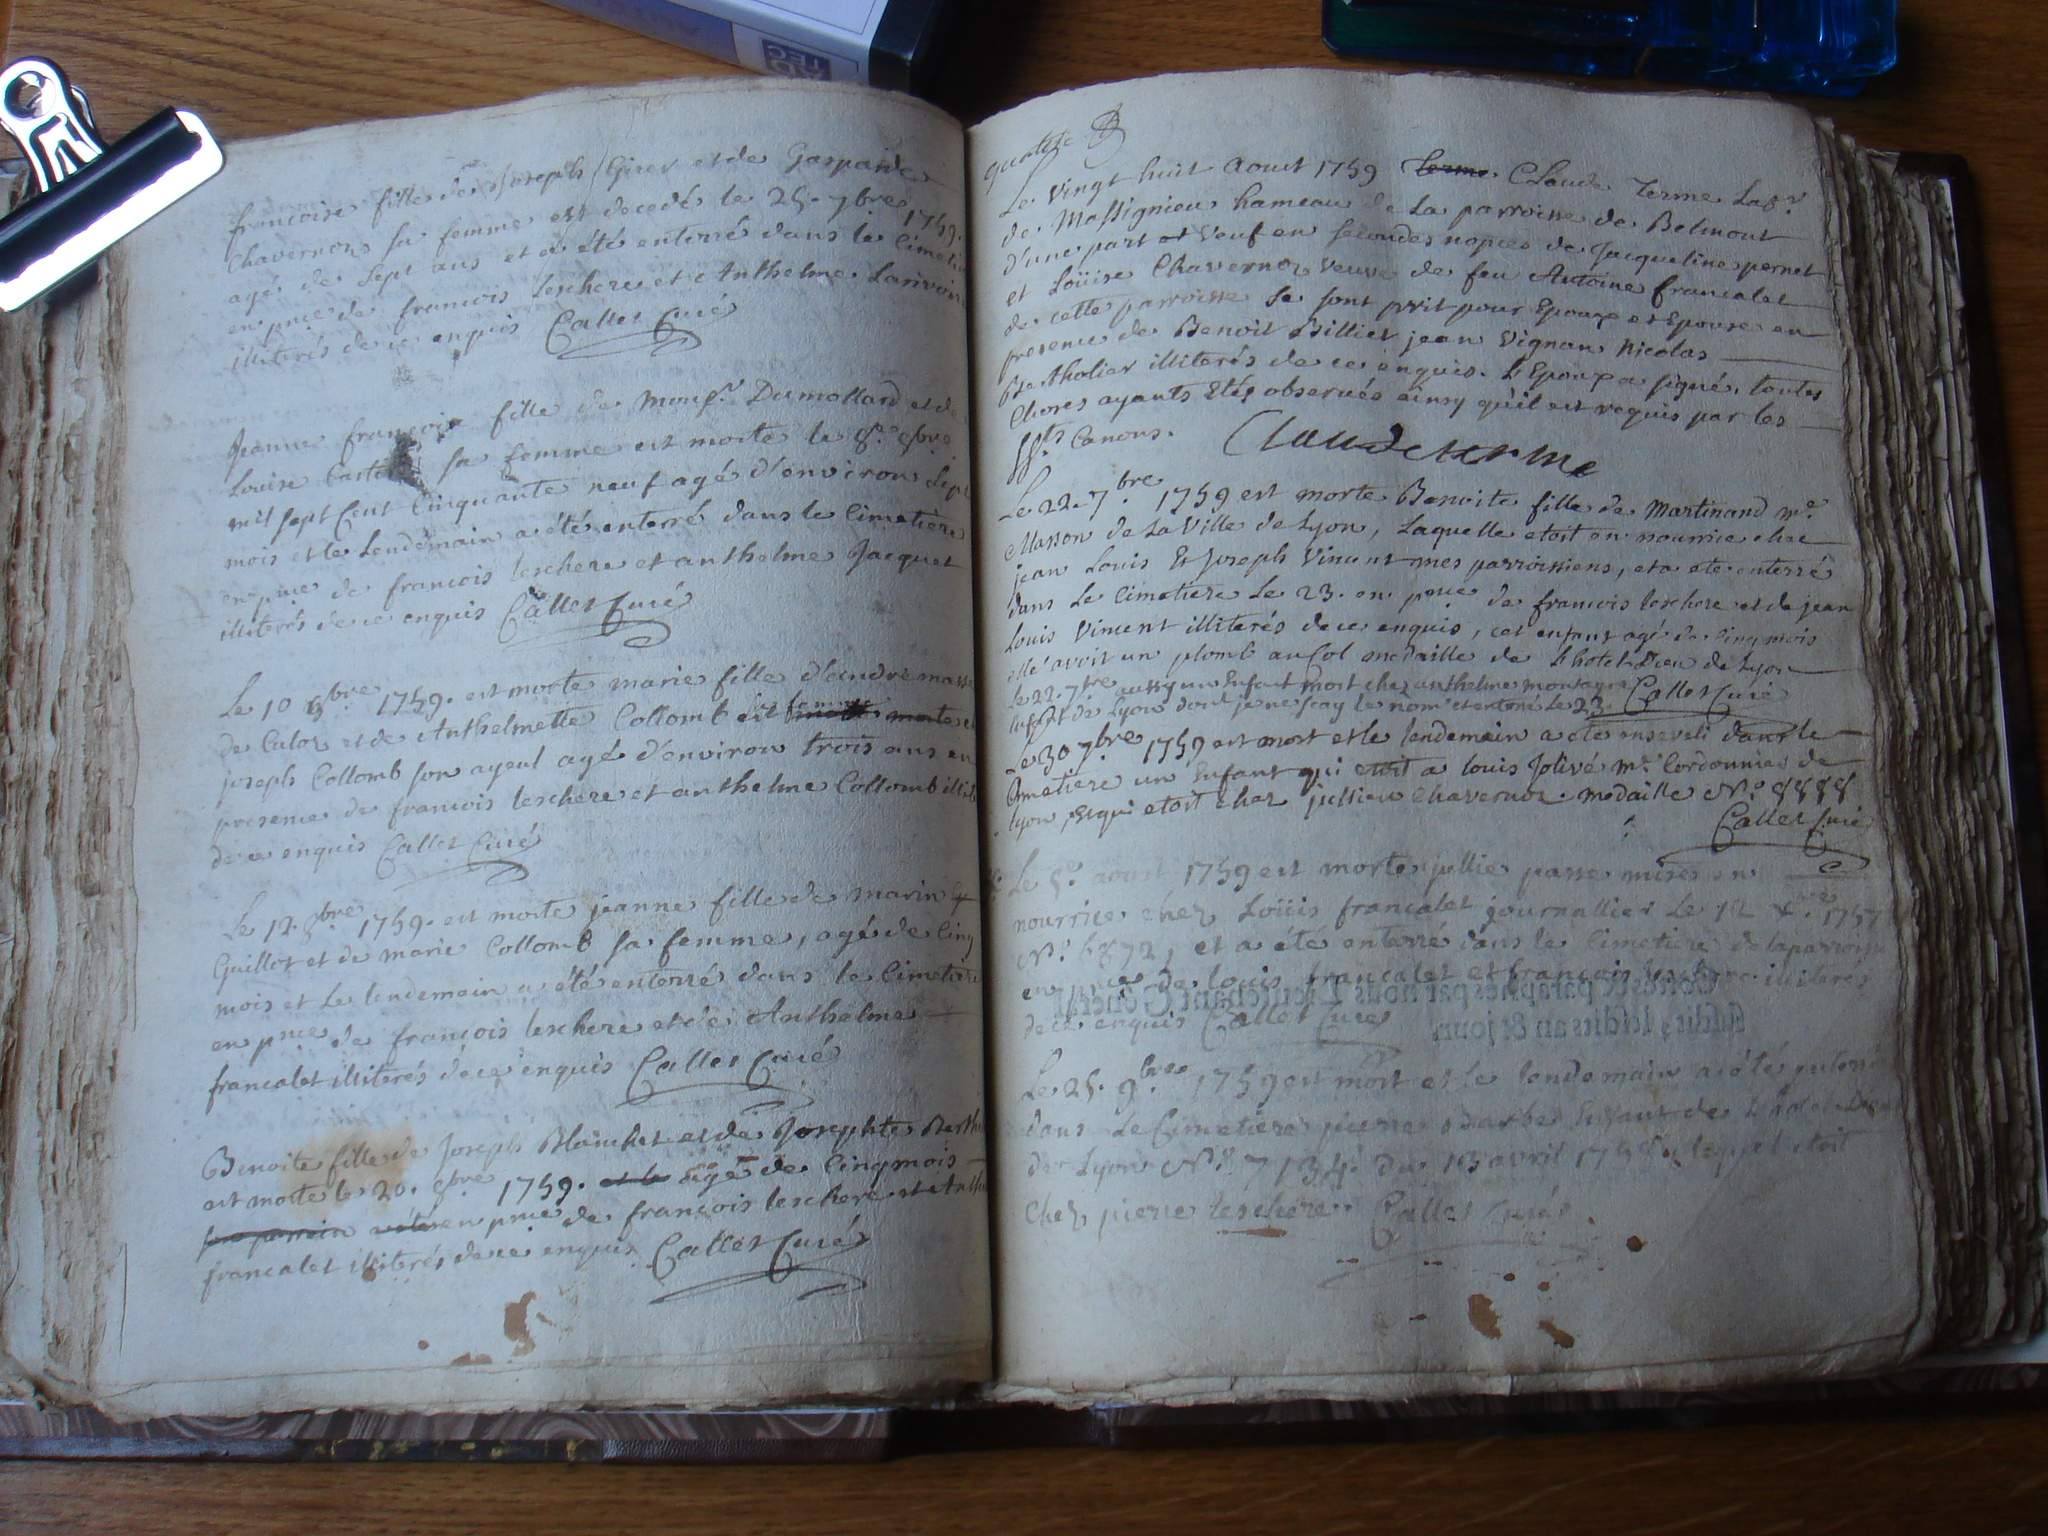 francoise fille de Joseph Girer et de Gasparde
Chavernoz sa femme est decedé le 25. 7bre 1759.
agé de sept ans et a été enterré dans le Cimetie
en pnce de francois leschere et Anthelme Larivoire
illiterés de ce enquis Callet Curé
Jeanne francoise fille de Monsr. Dumollard et de
Louise sa femme est morte le 8e. 8bre
mil sept Cent Cinquante neuf agé d'environ sept
mois et le Lendemain a été enterré dans le Cimetière
en pnce de francois leschere et anthelme Jacquet
illiterés de ce enquis Callet Curé
Le 10 8bre 1759. est morte marie fille d'andré masse
de Culoz et de Anthelmette Collomb sa femme et
joseph Collomb son ayeul agé d'environ trois ans en
presence de francois leschere et anthelme Collomb illit
de ce enquis Callet Curé
Le 12. 8bre 1759. est morte jeanne fille de marin
Guillot et de marie Collomb sa femme, agé de Cinq
mois et Le lendemain a été enterré dans le Cimetiere
en pnce de francois leschere et de Anthelme
francalet illiterés de ce enquis Callet Curé
Benoite fille de Joseph Blanchet et de Josephte Berth
est morte le 20. 8bre 1759. et le agé de Cinq mois
son parrain a été en pnce de francois leschere et Anth
francalet illiterés de ce enquis Callet Curé
quatre
Le vingt huit Aoust 1759 Terme Claude Terme Labr.
de Massignieu hameau de La parroisse de Belmont
d'une part et Veuf en secondes nopces de Jacqueline pernet
et Loüise Chavernoz veuve de feu Antoine francalet
de cette parroisse se sont prit pour Epoux et Epouse en
presence de Benoit Billiet jean Vignan Nicolas
Bertholier illiterés de ce enquis. L'Epoux a signé, toutes
Choses ayants Etés observées ainsy qu'il est requis par les
Sts. Canons. Claude terme
Le 22. 7bre 1759 est morte Benoite fille de Martinand me.
Masson de La Ville de Lyon, Laquelle etoit en nourrice chez
jean Louis Et Joseph Vincent mes parroissiens, et a ete enterré
dans Le Cimetiere Le 23. en pnce de francois leschere et de jean
Louis Vincent illiterés de ce enquis, cet enfant agé de Cinq mois
elle avoit un plomb au Col medaille de L'hotel Dieu de Lyon
Le 22. 7bre aussy un Enfant mort chez anthelme montagnier Callet Curé
Enfant de Lyon dont je ne scay le nom et enterré Le 23.
Le 30 7bre 1759 est mort et le lendemain a ete enseveli dans le
Cimetiere un Enfant qui etoit a louis Jolivé me. Cordonnier de
Lyon, Et qui etoit chez jullien Chavernoz. medaille No. 8888
Callet Curé
Le 5e. aoust 1759 est morte jullie passe mise en
nourrice chez Loüis francalet journallier Le 12 1757
No. 6872, et a été enterré dans le Cimetiere de la parroisse
en pnce de louis francalet et francois leschere illiterés
de ce enquis Callet Curé
Cottés & paraphés par nous Lieutenant Général
susdit, lesdits an & jour.
Le 25. 9bre 1759 est mort et le lendemain a été enterré
dans Le Cimetiere pierre Enfant de L'hotel Dieu
de Lyon No. 7134. du 13 avril 1758. lequel etoit
chez pierre leschere. Callet Curé